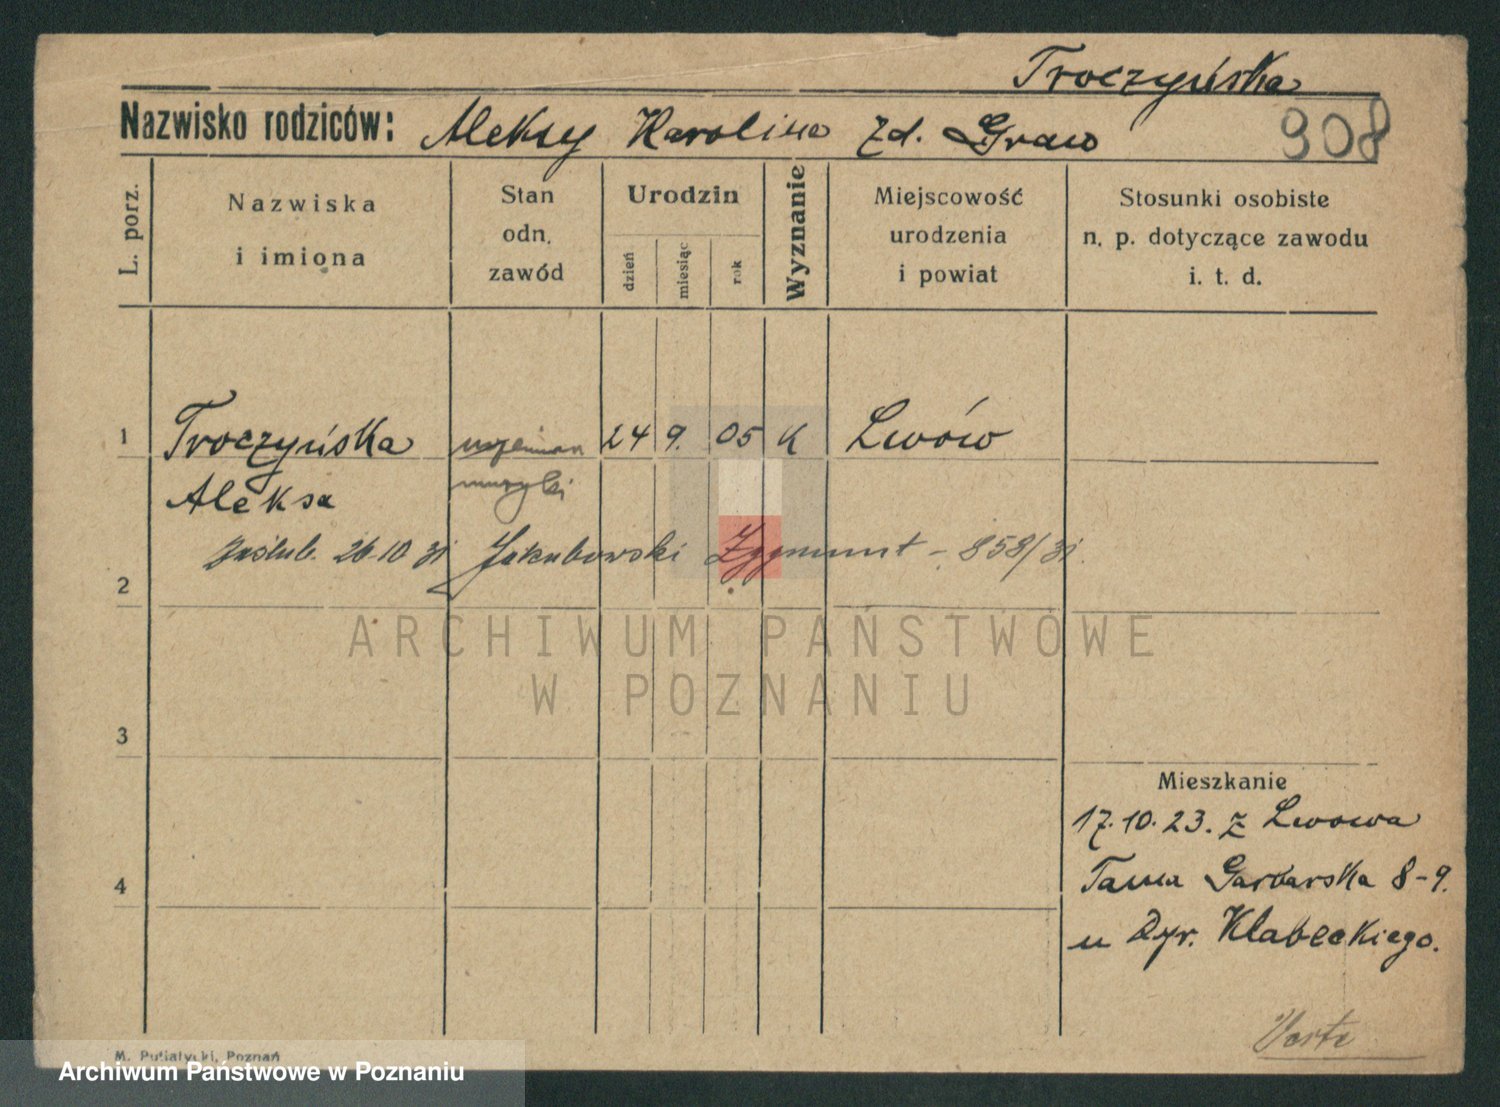 Troczyńska
Nazwisko rodziców: Aleksy Karolina zd. Graw 908
L. porz.
Nazwiska
i imiona
Stan
odn.
zawód
Urodzin
dzień
miesiąc
rok
Wyznanie
Miejscowość
urodzenia
i powiat
Stosunki osobiste
n. p. dotyczące zawodu
i. t. d.
1 Troczyńska 24 9. 05 K Lwów
Aleksa muzyki
zaślub. 26.10 31 Jakubowski Zygmunt - 858/31.
2
ARCHIWUM PAŃSTWOWE
W POZNANIU
3
Mieszkanie
17.10.23. z Lwowa
4 Tama Garbarska 8-9.
u Dyr. Klabeckiego.
Verte
M. Putiatycki, Poznań
Archiwum Państwowe w Poznaniu